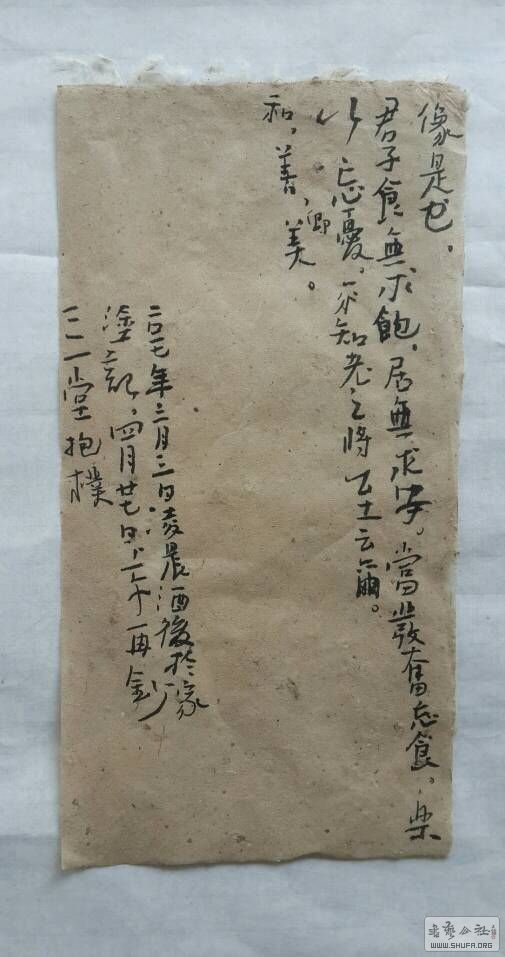 像是也，
君子食無求飽，居無求安。當發奮忘食。樂
以忘憂。不知老之將至云爾。
和，善，卽美。
二〇一七年三月三日凌晨酒後於家
塗記，四月廿七日下午再鈔
三一堂抱樸
書藝公社
WWW.SHUFA.ORG